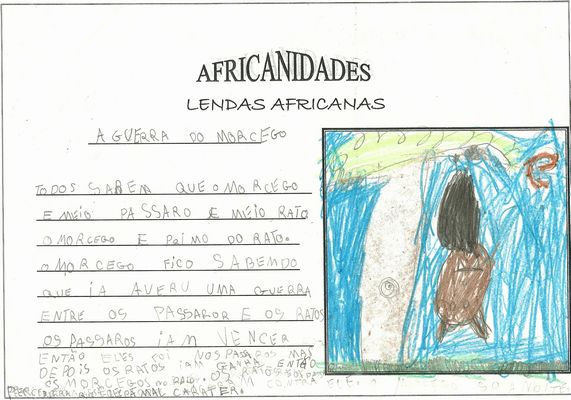 AFRICANIDADES
LENDAS AFRICANAS
A GUERRA DO MORCEGO
TODOS SABEM QUE O MORCEGO
E MEIO PASSARO E MEIO RATO
O MORCEGO E PRIMO DO RATO.
O MORCEGO FICO SABENDO
QUE IA AVERU UMA GUERRA
ENTRE OS PASSAROR E OS RATOS
OS PASSAROS IAM VENCER
ENTÃO ELES FOI NOS PASSAROS MAS
DEPOIS OS RATOS IAM GANHA ENTÃO
OS MORCEGOS RATO. OS RATOS
CONTRA ELE. O MORCEGO SO A NOITE
MAL CARATER.